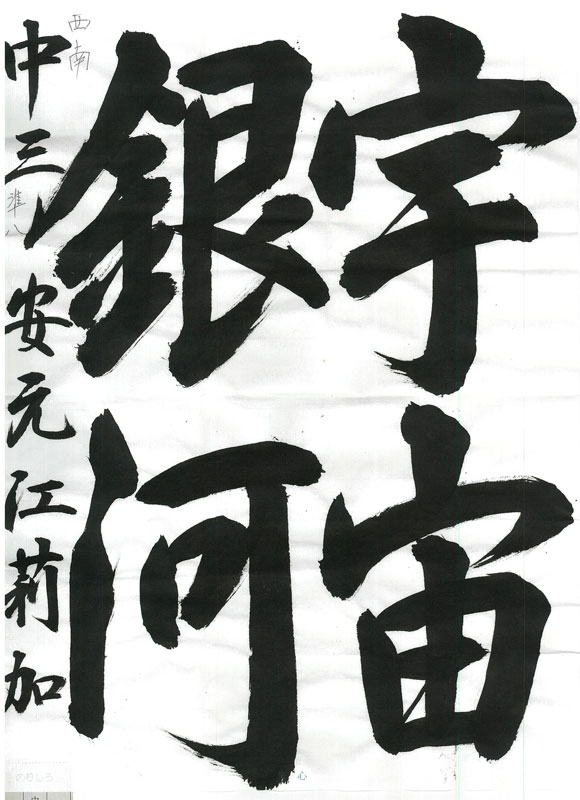 宇宙
銀河
中三 安元江莉加
西南
準八
のりしろ
心